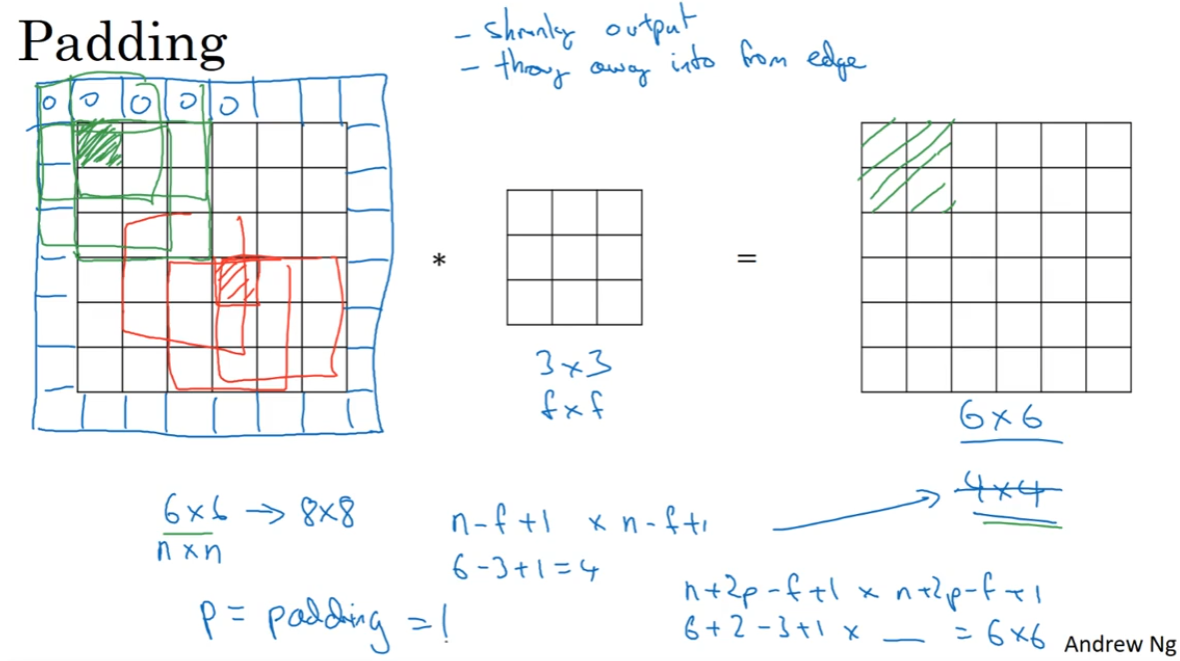 Padding
- shrinky output
- throw away info from edge
0 0 0 0 0
* =
3 × 3
f × f
6 × 6
4 × 4
6 × 6 → 8 × 8
n × n
n - f + 1 × n - f + 1
6 - 3 + 1 = 4
p = padding = 1
n + 2p - f + 1 × n + 2p - f + 1
6 + 2 - 3 + 1 × __ = 6 × 6
Andrew Ng